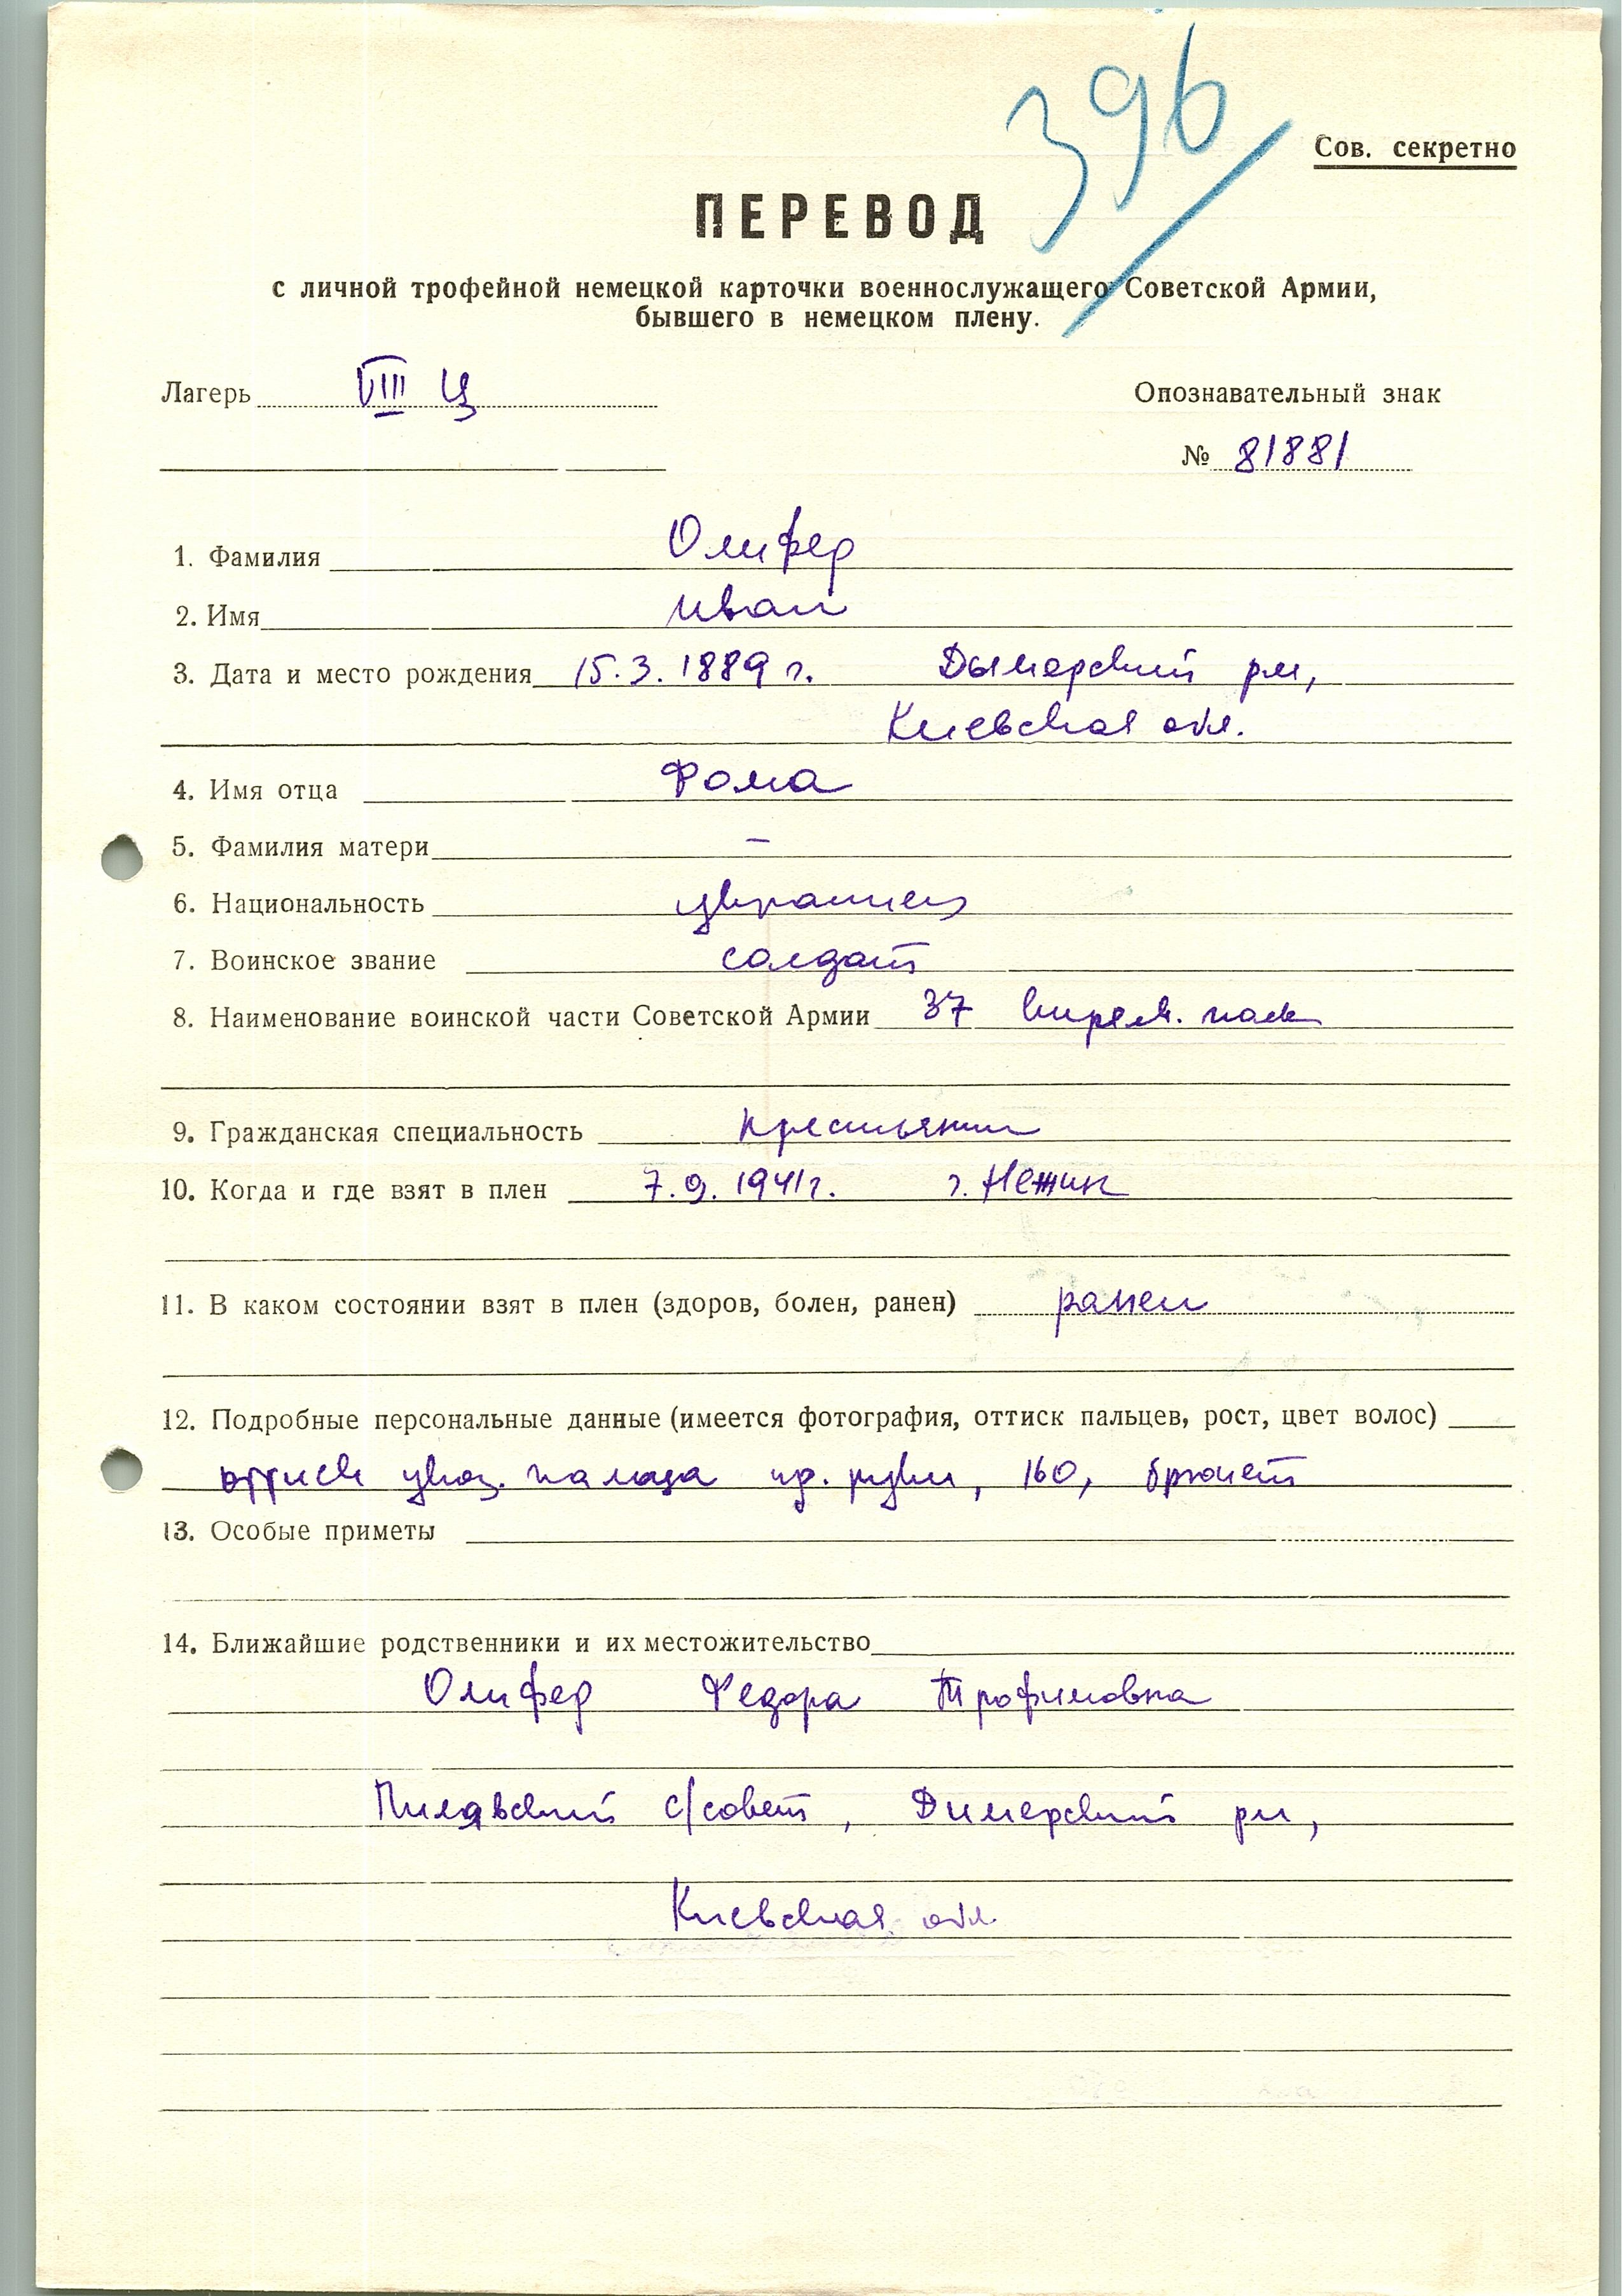 396
Сов. секретно
ПЕРЕВОД
с личной трофейной немецкой карточки военнослужащего Советской Армии,
бывшего в немецком плену.
Лагерь VIII Ц Опознавательный знак
№ 81881
1. Фамилия Олифер
2. Имя Иван
3. Дата и место рождения 15.3.1889 г. Дымерский рн,
Киевская обл.
4. Имя отца Фома
5. Фамилия матери –
6. Национальность украинец
7. Воинское звание солдат
8. Наименование воинской части Советской Армии 37 стрелк. полк
9. Гражданская специальность крестьянин
10. Когда и где взят в плен 7.9.1941г. г. Нежин
11. В каком состоянии взят в плен (здоров, болен, ранен) ранен
12. Подробные персональные данные (имеется фотография, оттиск пальцев, рост, цвет волос)
оттиск указ. пальца пр. руки, 160, брюнет
13. Особые приметы
14. Ближайшие родственники и их местожительство
Олифер Федора Трофимовна
Пилявский с/совет, Димерский рн,
Киевская обл.